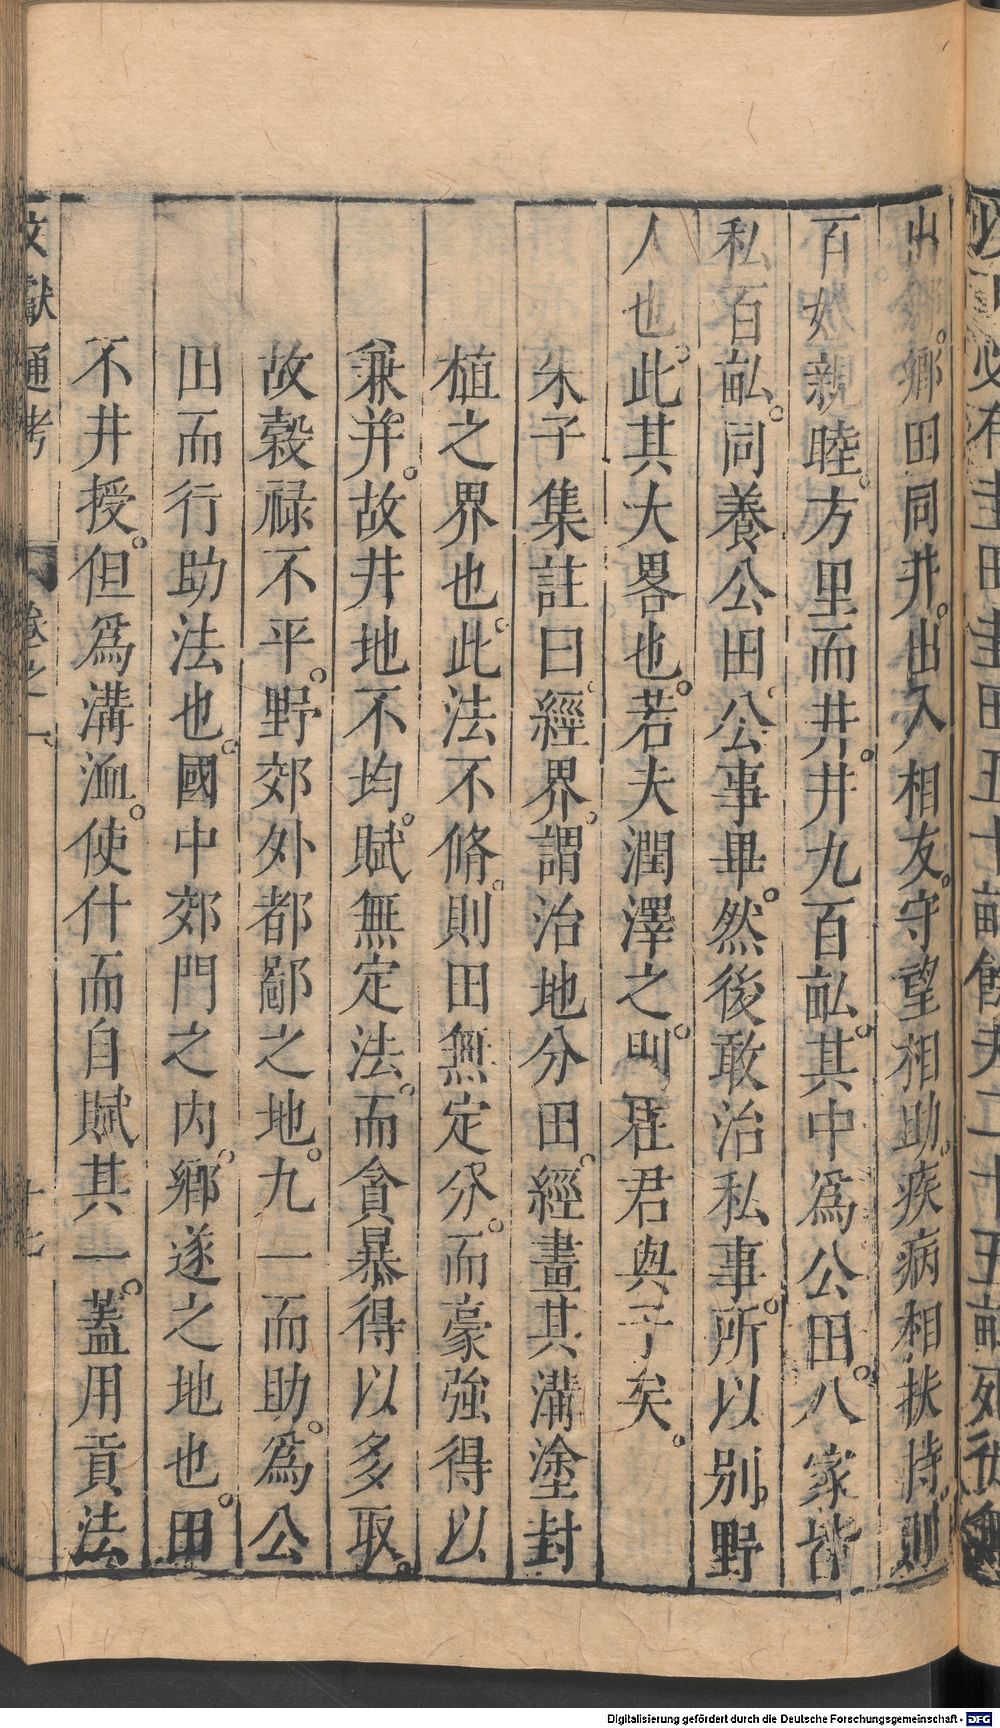 出鄉。鄉田同井。出入相友。守望相助。疾病相扶持。則
百姓親睦。方里而井。井九百畝。其中爲公田。八家皆
私百畝。同養公田。公事畢。然後敢治私事。所以別野
人也。此其大畧也。若夫潤澤之。則在君與子矣。
朱子集註曰。經界。謂治地分田。經畫其溝塗封
植之界也。此法不脩。則田無定分。而豪強得以
兼并。故井地不均。賦無定法。而貪暴得以多取。
故穀祿不平。野郊外都鄙之地。九一而助。爲公
田而行助法也。國中郊門之內。鄉遂之地也。田
不井授。但爲溝洫。使什而自賦其一。蓋用貢法
文獻通考 卷之一 十七
Digitalisierung gefördert durch die Deutsche Forschungsgemeinschaft - DFG